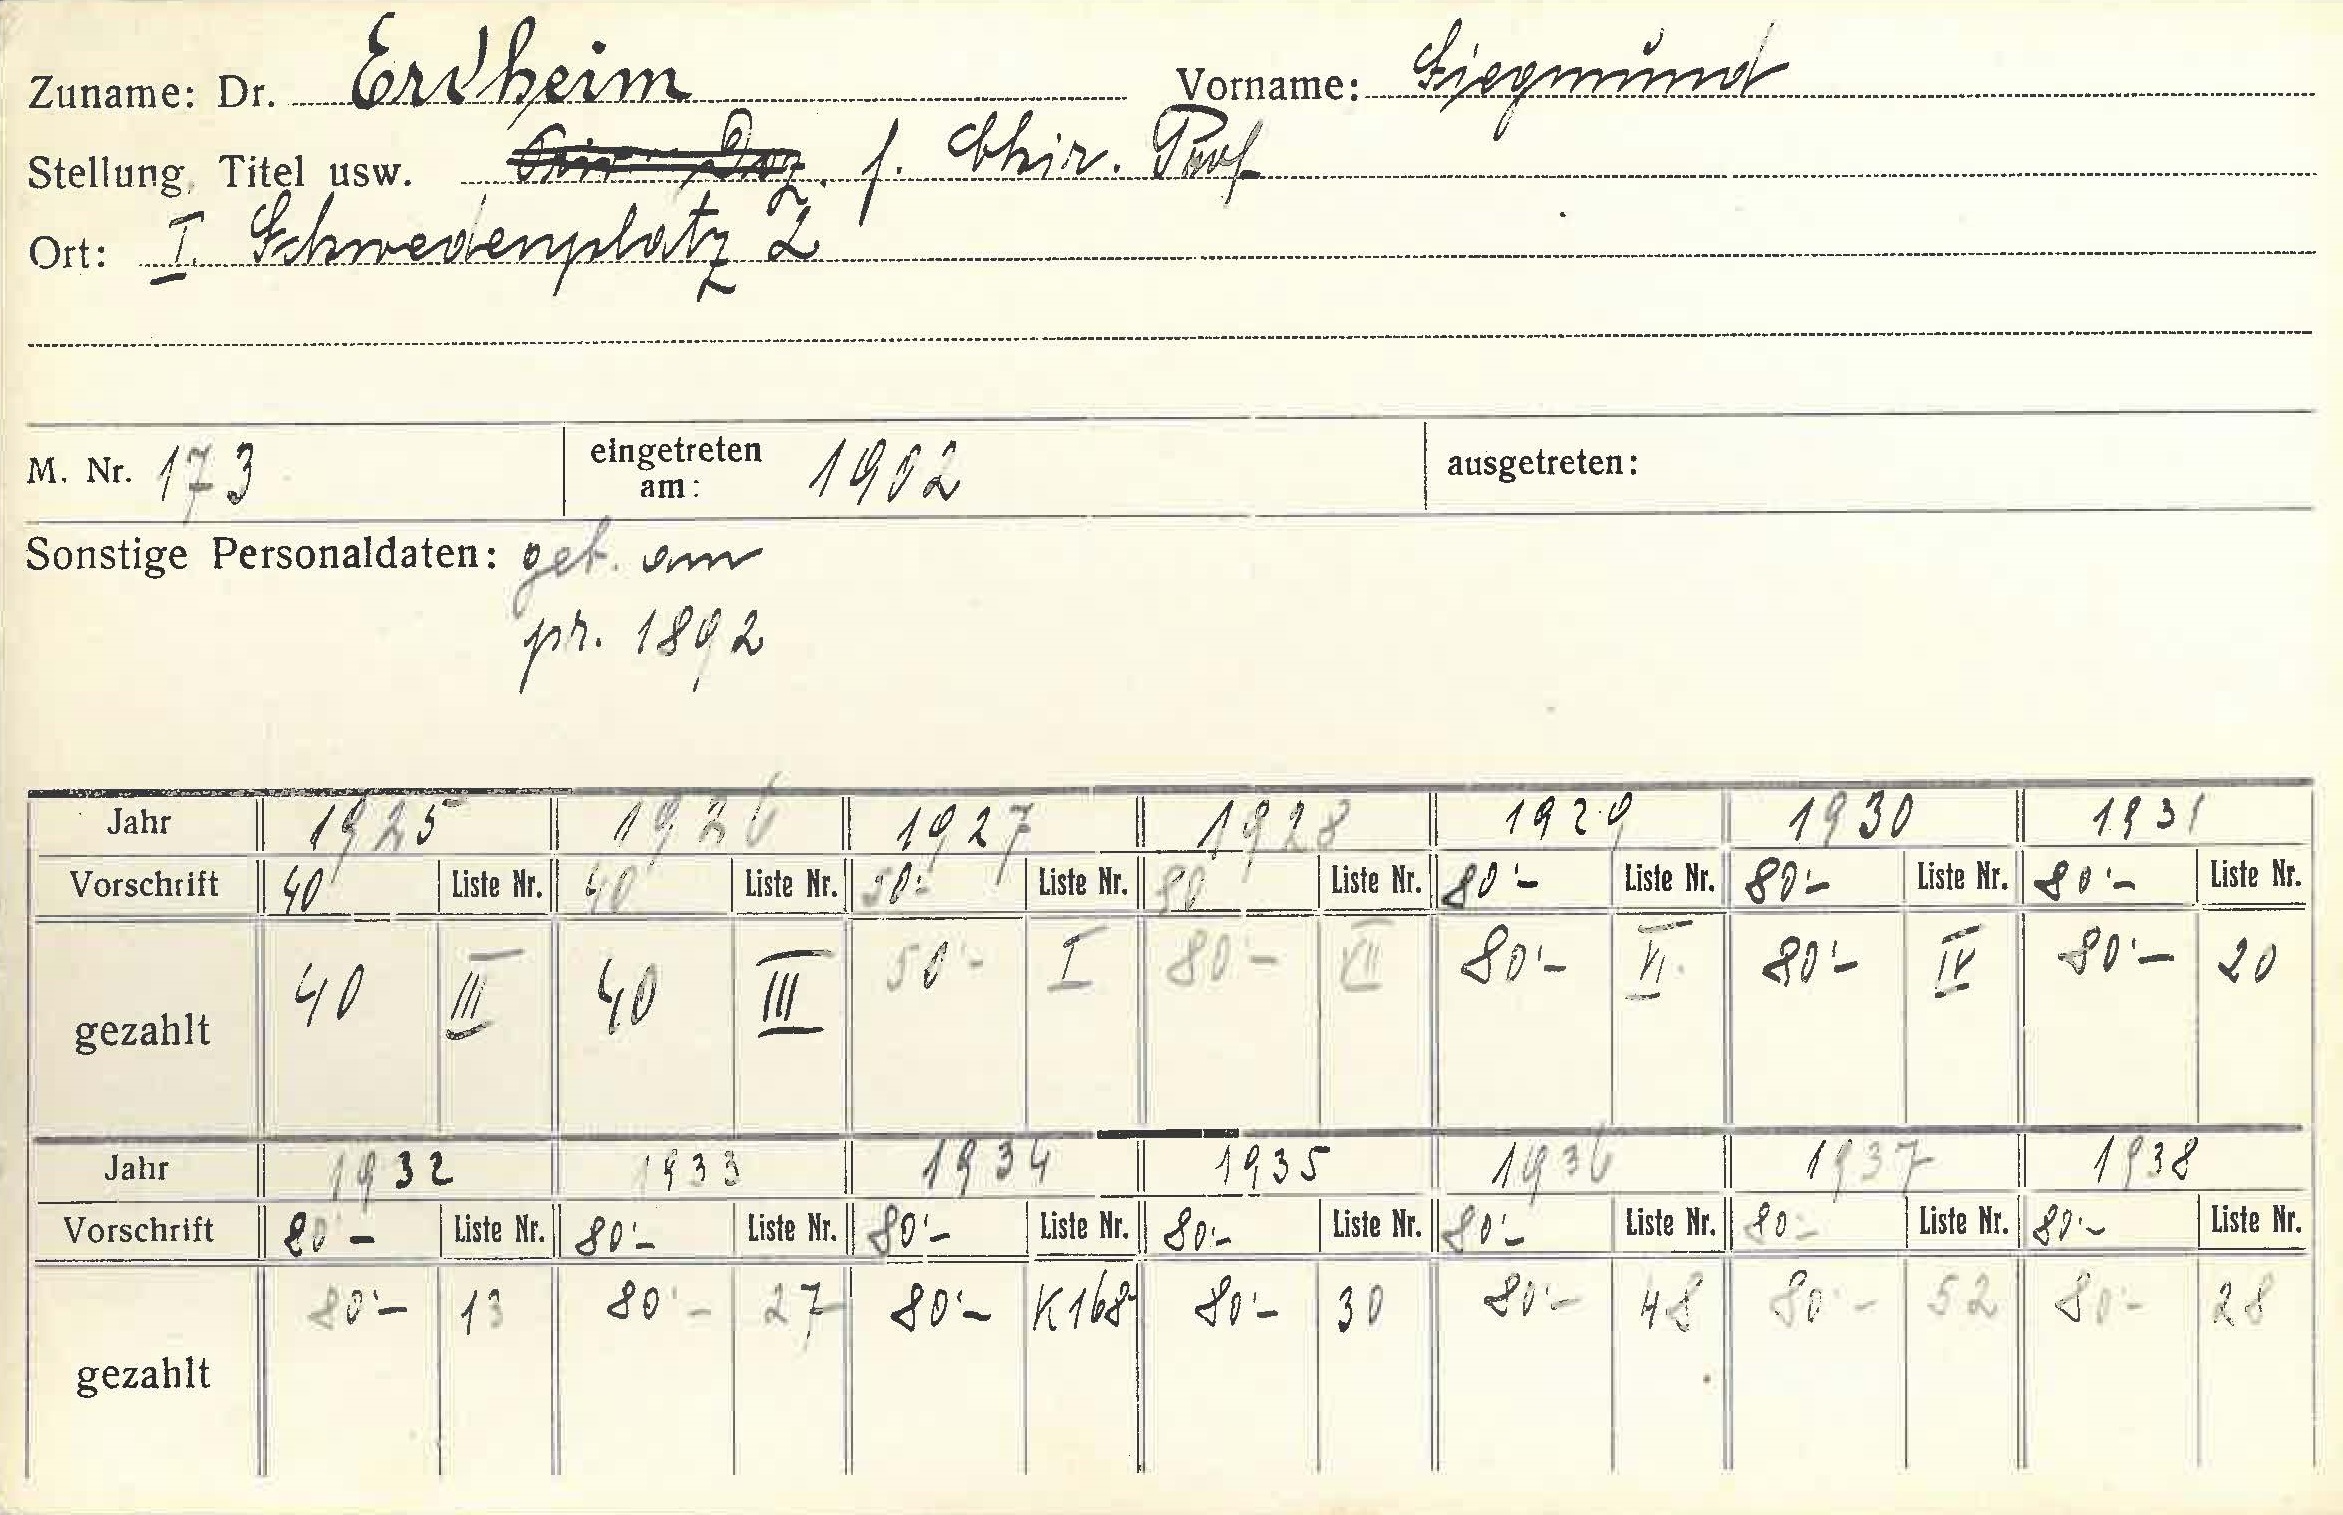 Zuname: Dr. Erdheim Vorname: Siegmund
Stellung, Titel usw. Priv. Doz. f. Chir. Prof
Ort: I. Schwedenplatz 2
M. Nr. 173 eingetreten am: 1902 ausgetreten:
Sonstige Personaldaten: geb. am
pr. 1892
Jahr 1925 1926 1927 1928 1929 1930 1931
Vorschrift 40 Liste Nr. 40 Liste Nr. 50'- Liste Nr. 80 Liste Nr. 80'- Liste Nr. 80'- Liste Nr. 80'- Liste Nr.
gezahlt 40 III 40 III 50'- I 80'- VII 80'- VI. 80'- IV 80'- 20
Jahr 1932 1933 1934 1935 1936 1937 1938
Vorschrift 80'- Liste Nr. 80'- Liste Nr. 80'- Liste Nr. 80'- Liste Nr. 80'- Liste Nr. 80'- Liste Nr. 80'- Liste Nr.
gezahlt 80'- 13 80'- 27 80'- K168 80'- 30 80'- 48 80'- 52 80'- 28